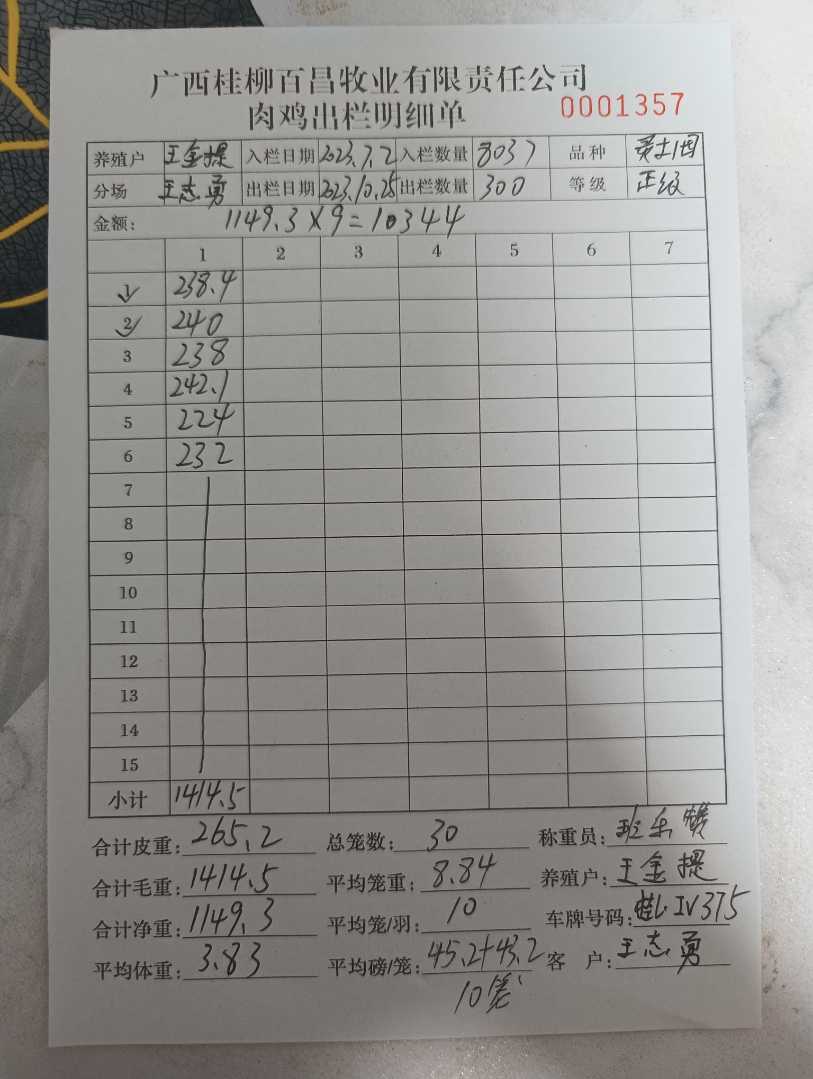 广西桂柳百昌牧业有限责任公司
肉鸡出栏明细单 0001357
养殖户 王金提 入栏日期 2023.7.2 入栏数量 8037 品种
分场 王志勇 出栏日期 2023.10.25 出栏数量 300 等级 正级
金额: 1149.3×9=10344
1 2 3 4 5 6 7
1 238.4
2 240
3 238
4 242.1
5 224
6 232
7
8
9
10
11
12
13
14
15
小计 1414.5
合计皮重: 265.2 总笼数: 30 称重员:
合计毛重: 1414.5 平均笼重: 8.84 养殖户: 王金提
合计净重: 1149.3 平均笼/羽: 10 车牌号码: 桂L·IV375
平均体重: 3.83 平均磅/笼: 45.2+43.2 客 户: 王志勇
10笼